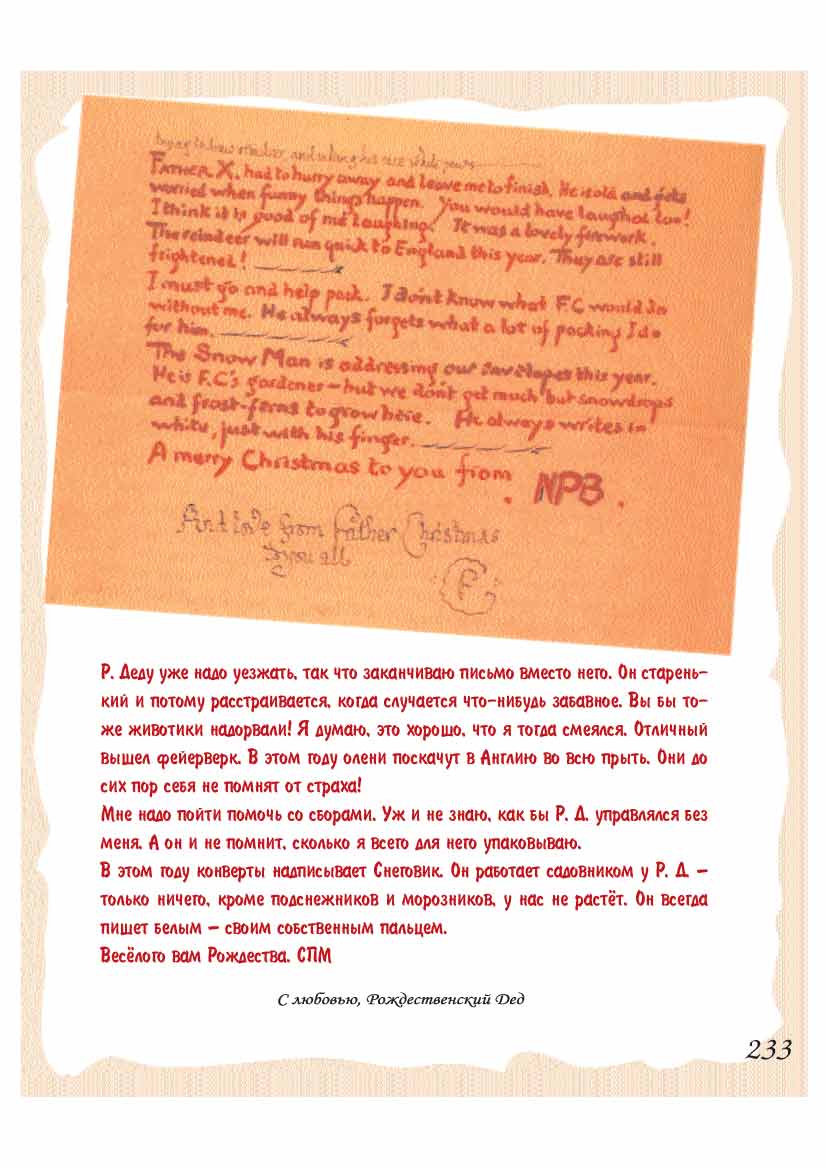 Father X. had to hurry away and leave me to finish. He is old and gets
worried when funny things happen. You would have laughed too!
I think it is good of me laughing. It was a lovely firework.
The reindeer will run quick to England this year. They are still
frightened!
I must go and help pack. I don't know what F.C would do
without me. He always forgets what a lot of packing I do
for him.
The Snow Man is addressing our envelopes this year.
He is F.C's gardener – but we don't get much but snowdrops
and frost-ferns to grow here. He always writes in
white, just with his finger.
A merry Christmas to you from NPB.
And love from Father Christmas
to you all
FC
Р. Деду уже надо уезжать, так что заканчиваю письмо вместо него. Он старень-
кий и потому расстраивается, когда случается что-нибудь забавное. Вы бы то-
же животики надорвали! Я думаю, это хорошо, что я тогда смеялся. Отличный
вышел фейерверк. В этом году олени поскачут в Англию во всю прыть. Они до
сих пор себя не помнят от страха!
Мне надо пойти помочь со сборами. Уж и не знаю, как бы Р. Д. управлялся без
меня. А он и не помнит, сколько я всего для него упаковываю.
В этом году конверты надписывает Снеговик. Он работает садовником у Р. Д. –
только ничего, кроме подснежников и морозников, у нас не растёт. Он всегда
пишет белым – своим собственным пальцем.
Весёлого вам Рождества. СПМ
С любовью, Рождественский Дед
233